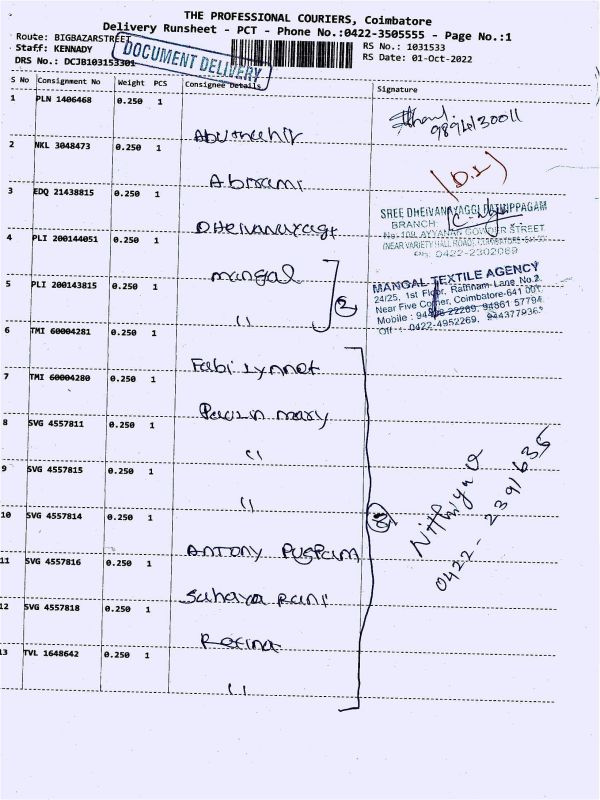 THE PROFESSIONAL COURIERS, Coimbatore
Delivery Runsheet - PCT - Phone No.:0422-3505555 - Page No.:1
Route: BIGBAZARSTREET
RS No.: 1031533
Staff: KENNADY
RS Date: 01-Oct-2022
DRS No.: DCJB103153301
DOCUMENT DELIVERY
S No Consignment No Weight PCS Consignee Details Signature
1 PLN 1406468 0.250 1
2 NKL 3048473 0.250 1 Abirami
3 EDQ 21438815 0.250 1
(D.S)
SREE DHEIVANAYAGGI PATHIPPAGAM
BRANCH:
No:108, AYYANAR GOWDER STREET
(NEAR VARIETY HALL ROAD), COIMBATORE
Ph: 0422-2302069
4 PLI 200144051 0.250 1 mangal
5 PLI 200143815 0.250 1 ''
2
MANGAL TEXTILE AGENCY
24/25, 1st Floor, Rathnam Lane No.2
Near Five Corner, Coimbatore-641 001.
Off : 0422-4952269,
6 TMI 60004281 0.250 1
7 TMI 60004280 0.250 1 mary
8 SVG 4557811 0.250 1 ''
9 SVG 4557815 0.250 1 ''
10 SVG 4557814 0.250 1 ANTONY
11 SVG 4557816 0.250 1 Sahaya Rani
12 SVG 4557818 0.250 1
13 TVL 1648642 0.250 1 ''
Nithiya
0422-2391635